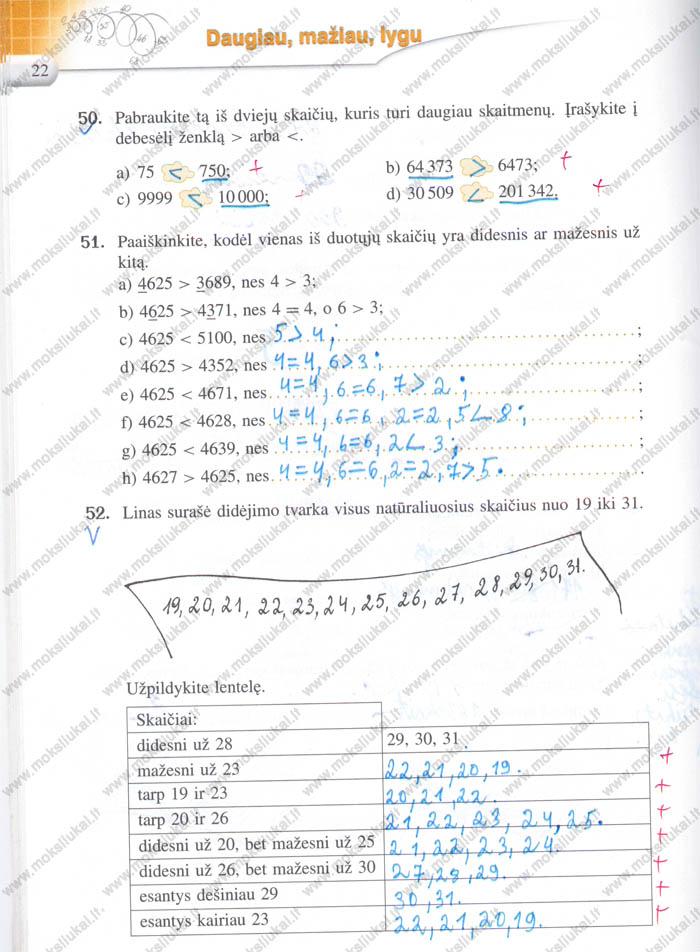 Daugiau, mažiau, lygu
22
50. Pabraukite tą iš dviejų skaičių, kuris turi daugiau skaitmenų. Įrašykite į
debesėlį ženklą > arba <.
a) 75 < 750; +
b) 64 373 > 6473; +
c) 9999 < 10 000; +
d) 30 509 < 201 342. +
51. Paaiškinkite, kodėl vienas iš duotųjų skaičių yra didesnis ar mažesnis už
kitą.
a) 4625 > 3689, nes 4 > 3;
b) 4625 > 4371, nes 4 = 4, o 6 > 3;
c) 4625 < 5100, nes 5 > 4; ;
d) 4625 > 4352, nes 4=4, 6>3; ;
e) 4625 < 4671, nes 4=4, 6=6, 7>2; ;
f) 4625 < 4628, nes 4=4, 6=6, 2=2, 5<8; ;
g) 4625 < 4639, nes 4=4, 6=6, 2<3; ;
h) 4627 > 4625, nes 4=4, 6=6, 2=2, 7>5.
52. Linas surašė didėjimo tvarka visus natūraliuosius skaičius nuo 19 iki 31.
V
19, 20, 21, 22, 23, 24, 25, 26, 27, 28, 29, 30, 31.
Užpildykite lentelę.
Skaičiai:
didesni už 28 29, 30, 31.
mažesni už 23 22, 21, 20, 19. +
tarp 19 ir 23 20, 21, 22. +
tarp 20 ir 26 21, 22, 23, 24, 25. +
didesni už 20, bet mažesni už 25 21, 22, 23, 24. +
didesni už 26, bet mažesni už 30 27, 28, 29. +
esantys dešiniau 29 30, 31. +
esantys kairiau 23 22, 21, 20, 19. +
www.moksliukai.lt